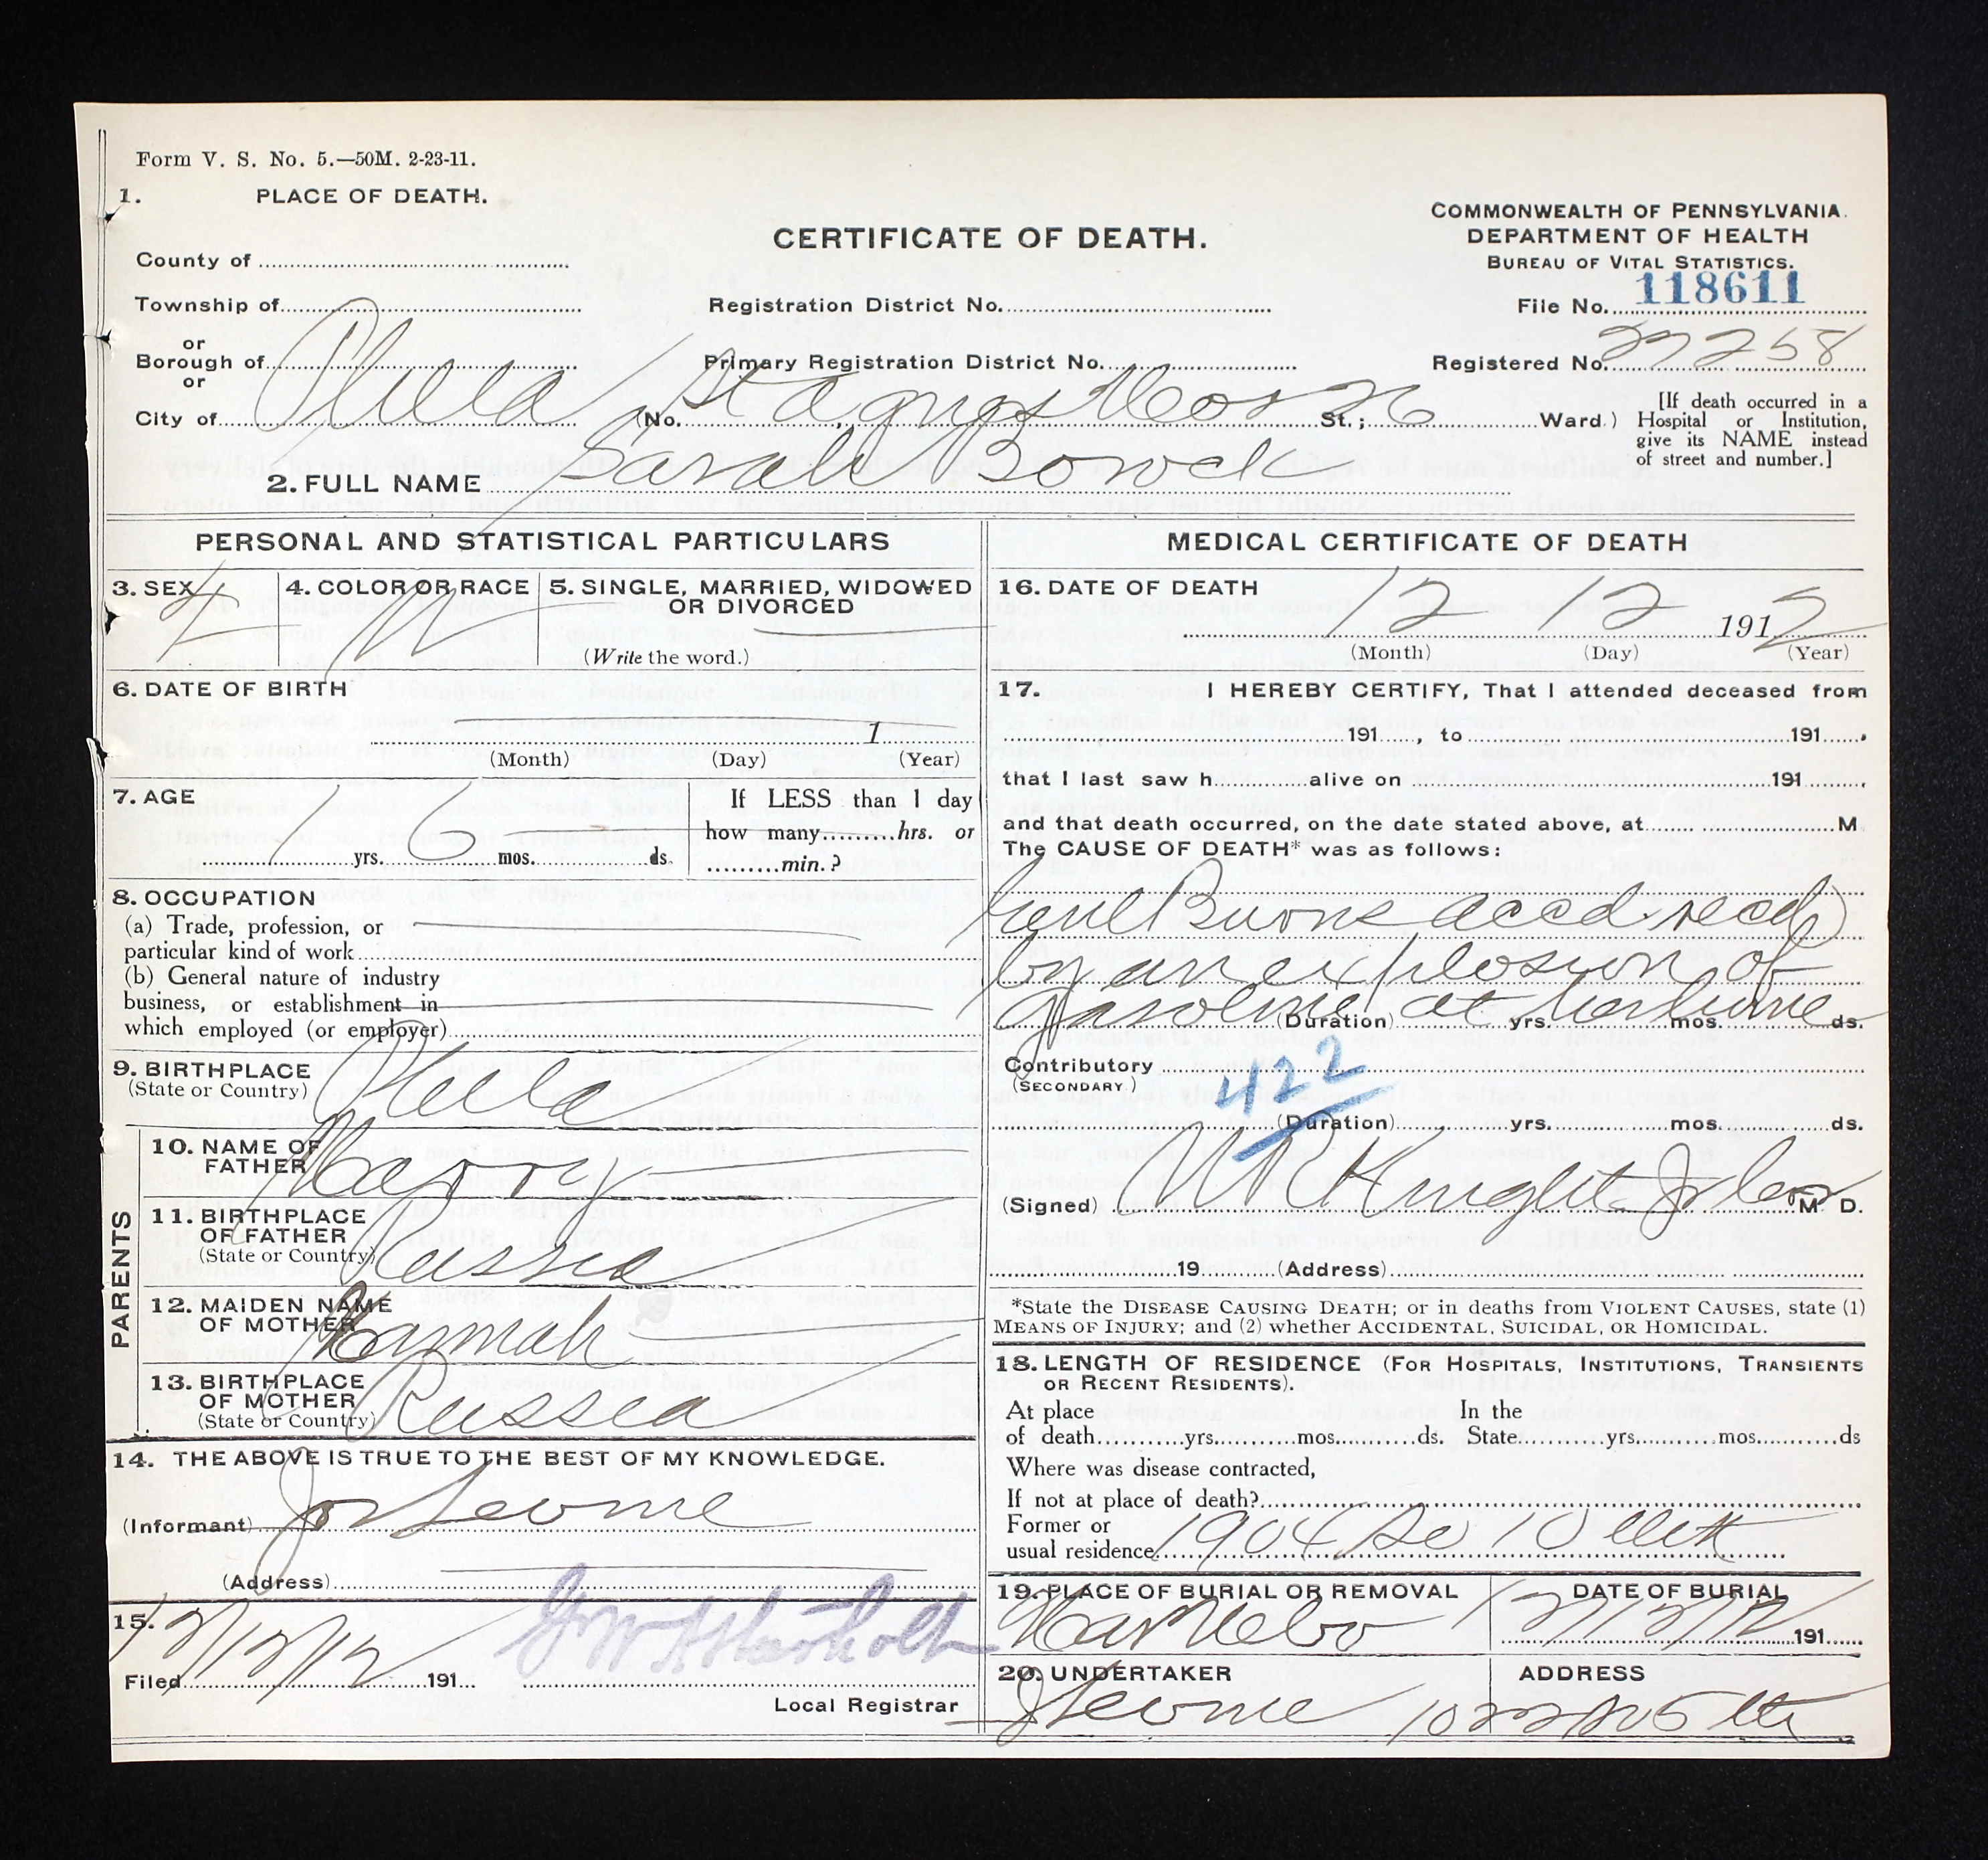 Form V. S. No. 5.—50M. 2-23-11.
1. PLACE OF DEATH.
COMMONWEALTH OF PENNSYLVANIA.
DEPARTMENT OF HEALTH
BUREAU OF VITAL STATISTICS.
CERTIFICATE OF DEATH.
County of
Township of
Registration District No.
File No. 118611
or
Borough of
or
Primary Registration District No.
Registered No. 27258
City of Phila (No. St Agnes Hos St.; 26 Ward.)
[If death occurred in a
Hospital or Institution,
give its NAME instead
of street and number.]
2. FULL NAME Sarah
PERSONAL AND STATISTICAL PARTICULARS
3. SEX F
4. COLOR OR RACE W
5. SINGLE, MARRIED, WIDOWED
OR DIVORCED
(Write the word.)
6. DATE OF BIRTH
1
(Month) (Day) (Year)
7. AGE
1 yrs. 6 mos. ds.
If LESS than 1 day
how many hrs. or
min.?
8. OCCUPATION
(a) Trade, profession, or
particular kind of work
(b) General nature of industry
business, or establishment in
which employed (or employer)
9. BIRTHPLACE
(State or Country) Phila
PARENTS
10. NAME OF
FATHER Harry
11. BIRTHPLACE
OF FATHER
(State or Country) Russia
12. MAIDEN NAME
OF MOTHER Hannah
13. BIRTHPLACE
OF MOTHER
(State or Country) Russia
14. THE ABOVE IS TRUE TO THE BEST OF MY KNOWLEDGE.
(Informant) Jos Levine
(Address)
15.
Filed 12/12/12 191
Local Registrar
MEDICAL CERTIFICATE OF DEATH
16. DATE OF DEATH
12 12 1912
(Month) (Day) (Year)
17. I HEREBY CERTIFY, That I attended deceased from
191 , to 191 .
that I last saw h alive on 191 ,
and that death occurred, on the date stated above, at M
The CAUSE OF DEATH* was as follows:
Genl Burns accd recd
by an explosion of
Gasoline at her home
(Duration) yrs. mos. ds.
Contributory
(SECONDARY)
422
(Duration) yrs. mos. ds.
(Signed) W R Knight Jr Cor M. D.
19 (Address)
*State the DISEASE CAUSING DEATH; or in deaths from VIOLENT CAUSES, state (1)
MEANS OF INJURY; and (2) whether ACCIDENTAL, SUICIDAL, OR HOMICIDAL.
18. LENGTH OF RESIDENCE (FOR HOSPITALS, INSTITUTIONS, TRANSIENTS
OR RECENT RESIDENTS).
At place In the
of death yrs. mos. ds. State yrs. mos. ds
Where was disease contracted,
If not at place of death?
Former or
usual residence 1904 So 10
19. PLACE OF BURIAL OR REMOVAL
Har Nebo
DATE OF BURIAL
12/12/12 191
20. UNDERTAKER
J Levine
ADDRESS
1022 N 5 th